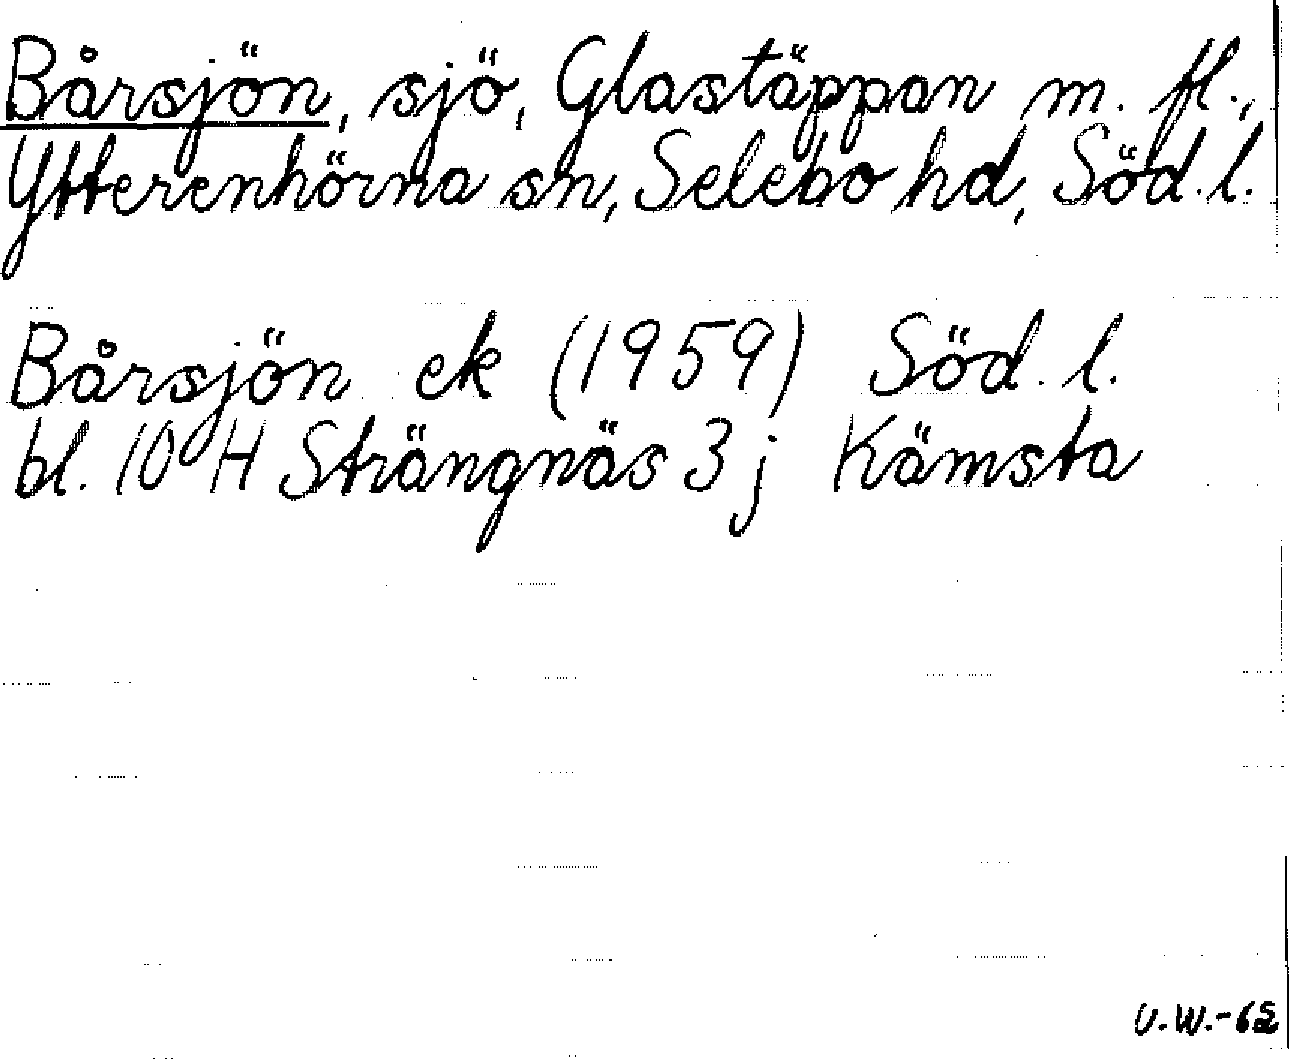 Bårsjön, sjö, Glastäppan m. fl.,
Ytterenhörna sn, Selebo hd, Söd. l.
Bårsjön ek (1959) Söd. l.
bl. 10 H Strängnäs 3 j Kämsta
U.W.-62